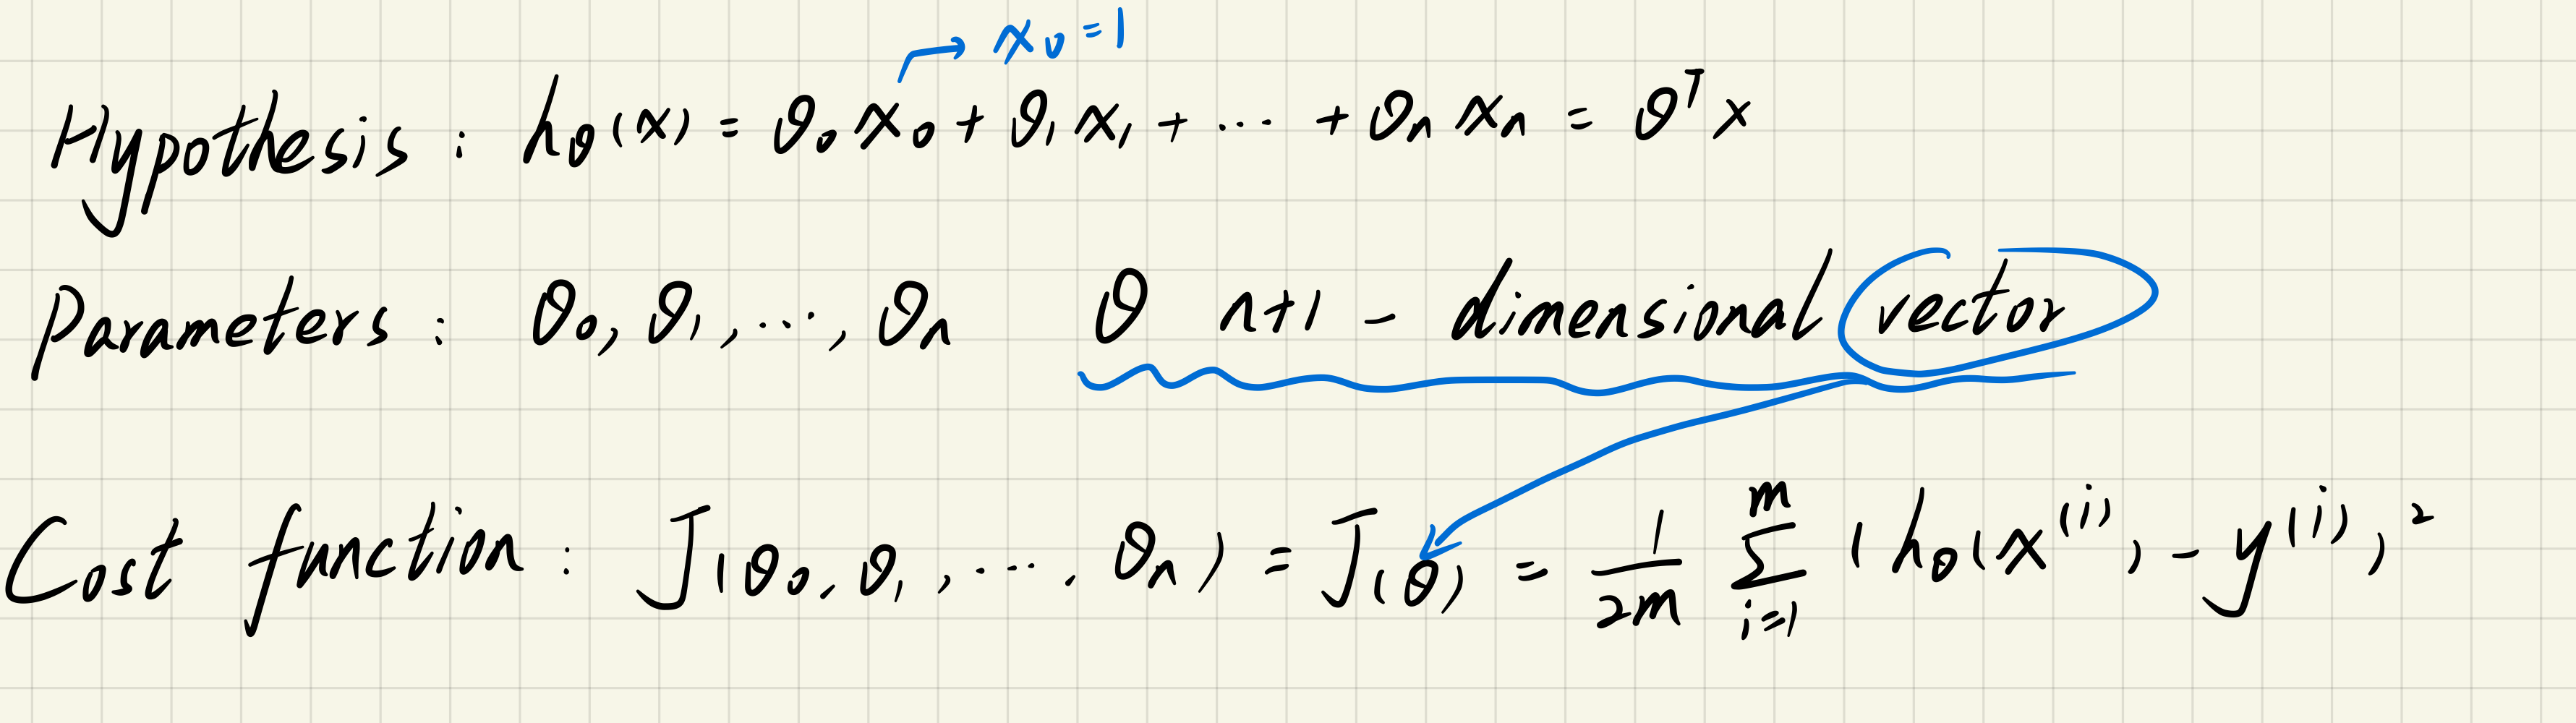 x₀ = 1
Hypothesis : h_θ(x) = θ₀x₀ + θ₁x₁ + ... + θₙxₙ = θᵀx
Parameters : θ₀, θ₁, ..., θₙ θ n+1 - dimensional vector
Cost function : J(θ₀, θ₁, ..., θₙ) = J(θ) = 1/2m ∑_{i=1}^{m} (h_θ(x⁽ⁱ⁾) - y⁽ⁱ⁾)²